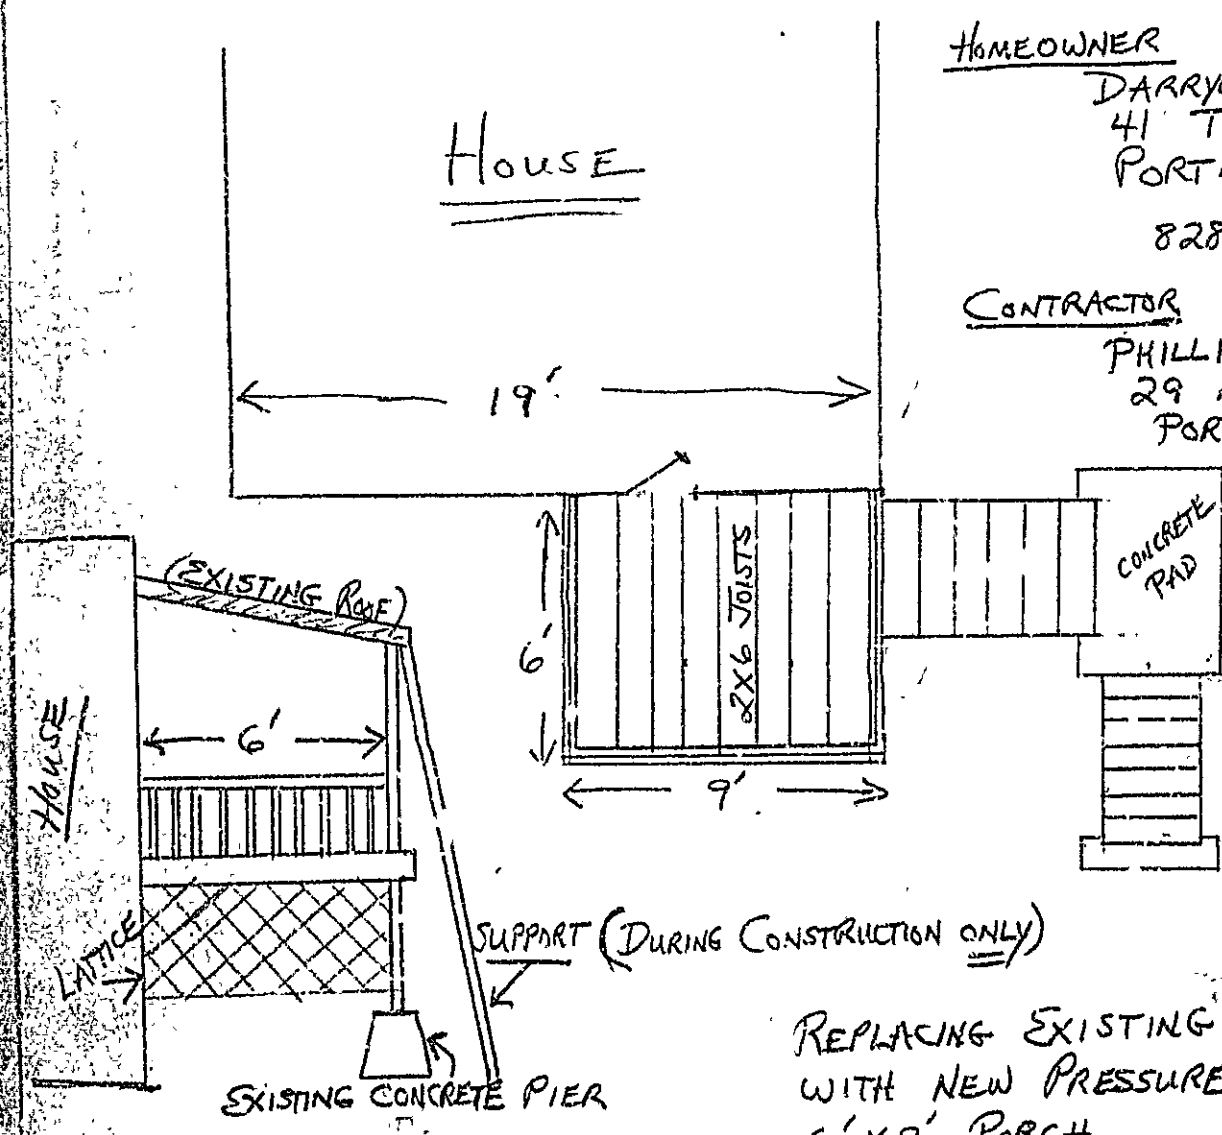 HOMEOWNER
DARRY
41 T
PORT
828
HOUSE
CONTRACTOR
PHILLI
29
POR
19'
CONCRETE
PAD
(EXISTING ROOF)
6'
2X6 JOISTS
HOUSE
6'
9'
LATTICE
SUPPORT (DURING CONSTRUCTION ONLY)
EXISTING CONCRETE PIER
REPLACING EXISTING
WITH NEW PRESSURE
6'X9' PORCH